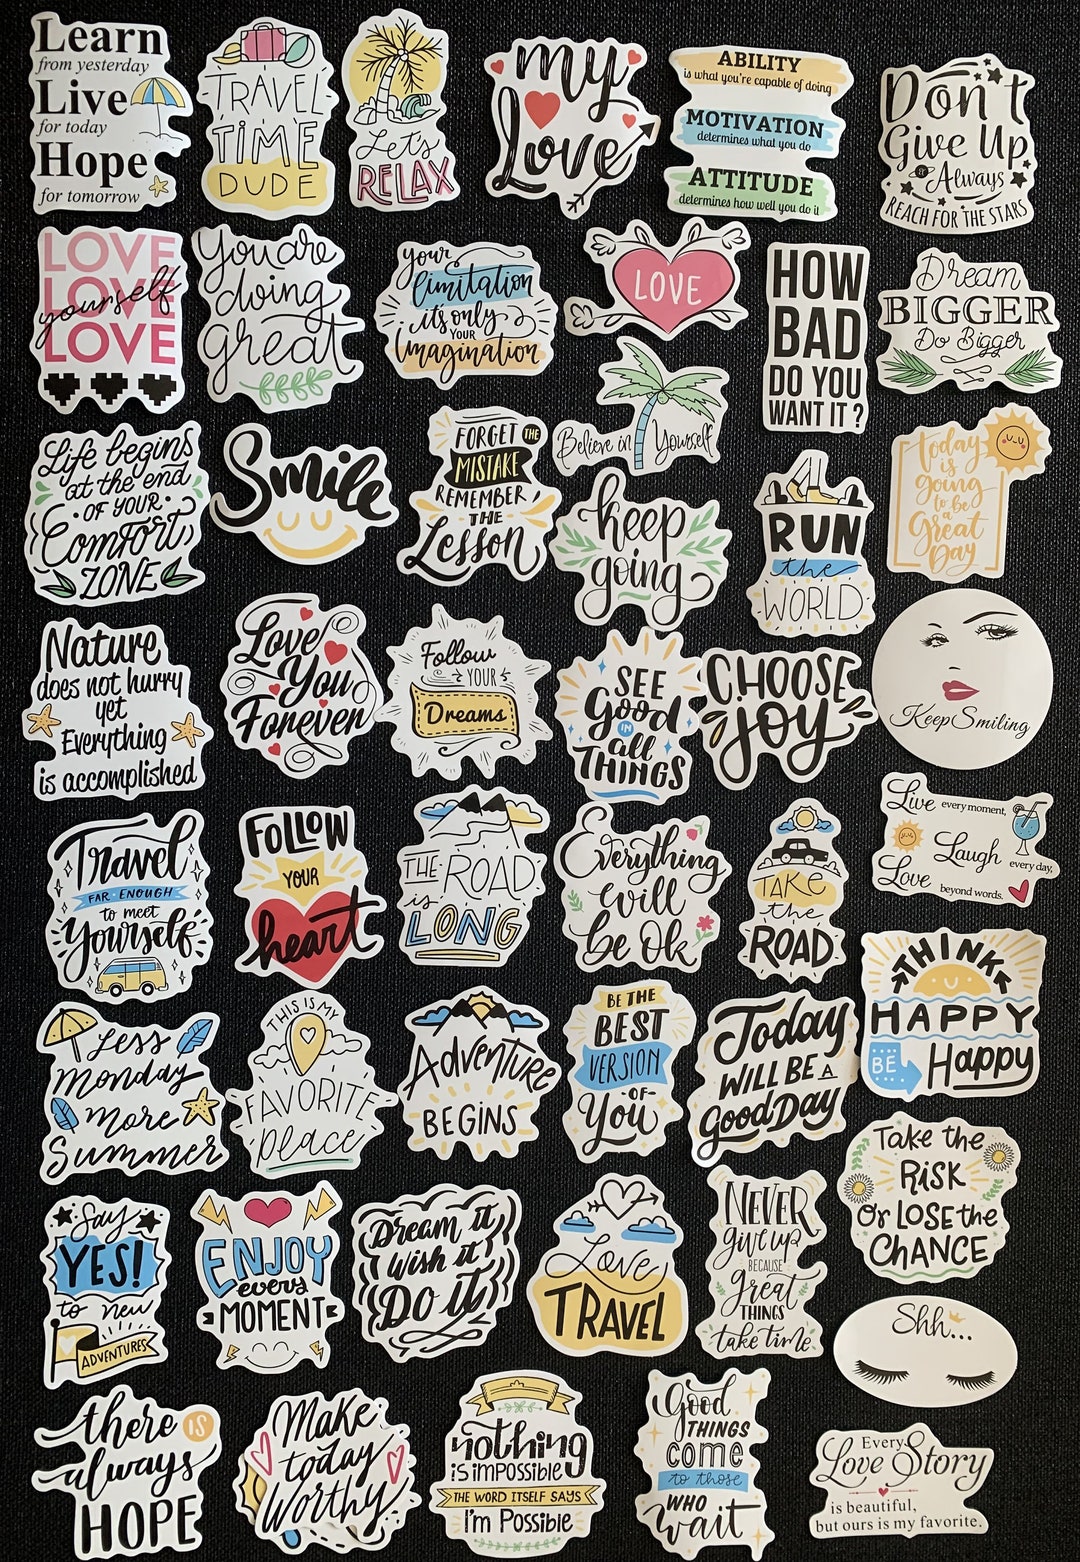 Learn
from yesterday
Live
for today
Hope
for tomorrow
TRAVEL
TIME
DUDE
Let's
RELAX
my
Love
ABILITY
is what you're capable of doing
MOTIVATION
determines what you do
ATTITUDE
determines how well you do it
Don't
Give Up
Always
REACH FOR THE STARS
LOVE
LOVE
yourself
LOVE
You are
doing
great
your
limitation
it's only
YOUR
imagination
LOVE
HOW
BAD
DO YOU
WANT IT?
Dream
BIGGER
Do Bigger
Believe in Yourself
Life begins
at the end
OF YOUR
Comfort
ZONE
Smile
FORGET THE
MISTAKE
REMEMBER
THE
Lesson
keep
going
RUN
the
WORLD
today
is
going
to be
a
Great
Day
Nature
does not hurry
yet
Everything
is accomplished
Love
You
Forever
Follow
YOUR
Dreams
SEE
Good
IN
all
THINGS
CHOOSE
joy
Keep Smiling
Travel
FAR ENOUGH
to meet
Yourself
FOLLOW
YOUR
heart
THE ROAD
is
LONG
Everything
will
be ok
TAKE
the
ROAD
Live every moment,
Laugh every day,
Love beyond words.
THINK
HAPPY
BE Happy
Less
Monday
more
Summer
THIS IS MY
FAVORITE
place
Adventure
BEGINS
BE THE
BEST
VERSION
OF
You
Today
WILL BE A
Good Day
Take the
RISK
Or LOSE the
CHANCE
Say
YES!
to new
ADVENTURES
ENJOY
every
MOMENT
Dream it
Wish it
Do it
Love
TRAVEL
NEVER
give up
BECAUSE
Great
THINGS
take time
Shh...
there IS
always
HOPE
Make
today
Worthy
nothing
IS IMPOSSIBLE
THE WORD ITSELF SAYS
I'm Possible
Good
THINGS
come
to those
WHO
wait
Every
Love Story
is beautiful,
but ours is my favorite.